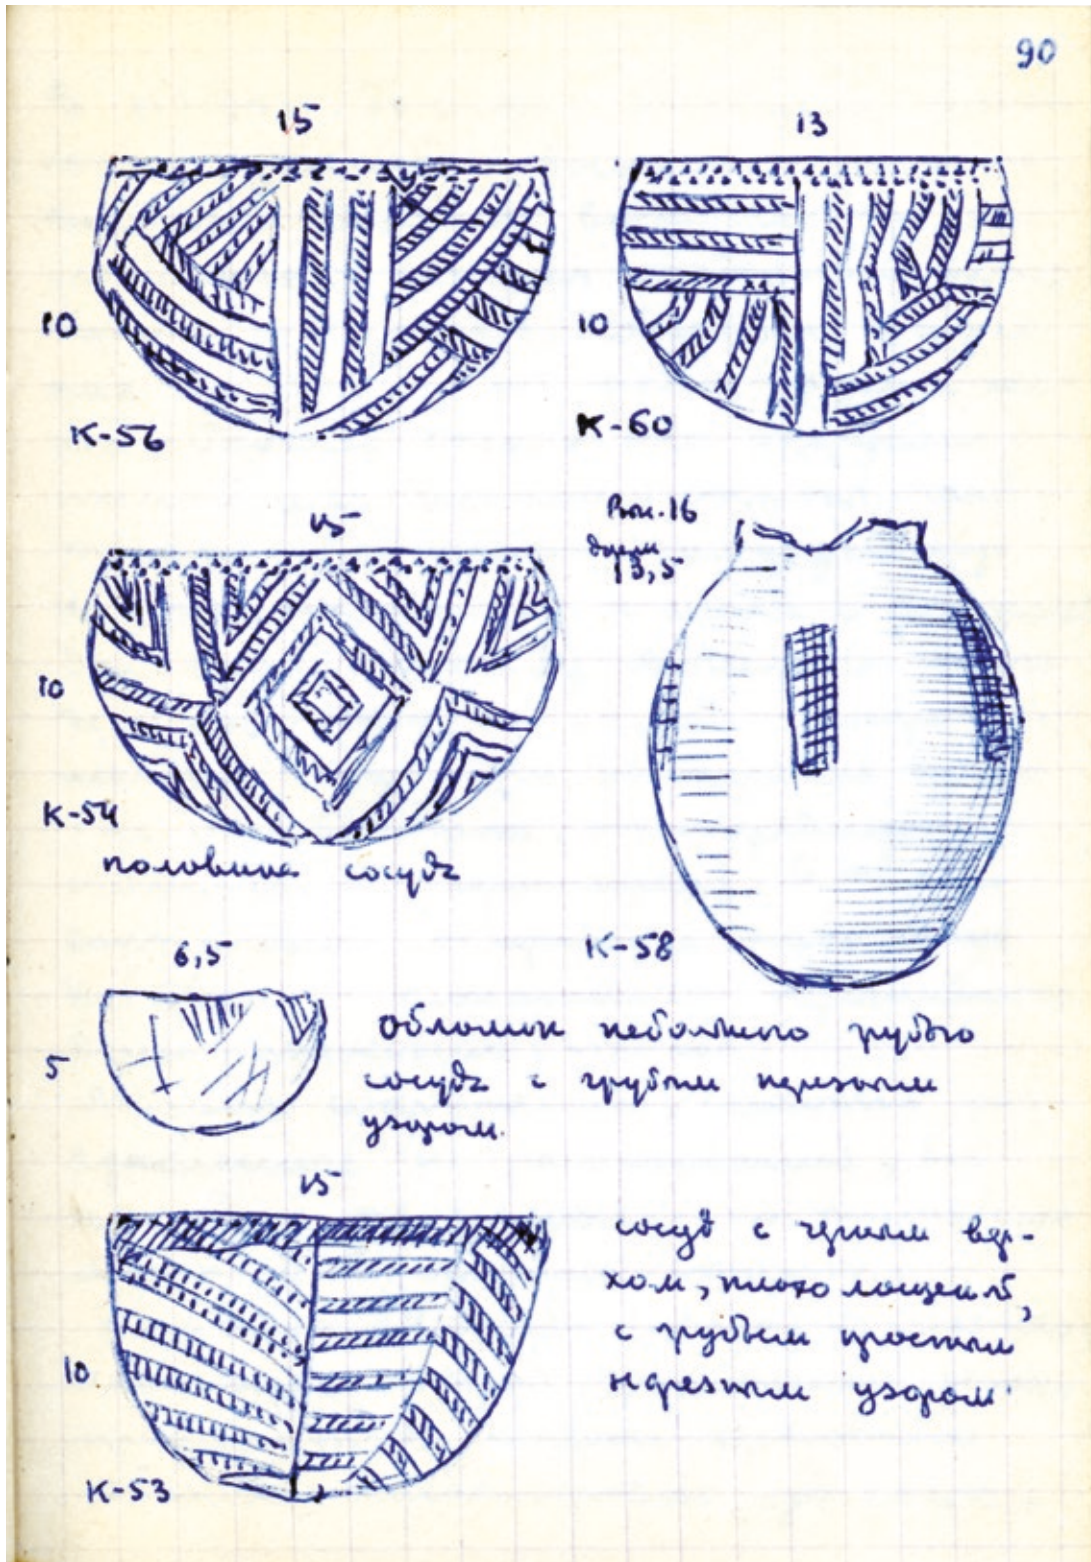 90
15
13
10
10
К-56
К-60
15
Выс. 16
13,5
10
К-54
половина сосуда
К-58
6,5
5
обломок небольшого грубого
сосуда с грубым нарезным
узором.
15
сосуд с черным вер-
хом, плохо лощеный,
с грубым простым
нарезным узором
10
К-53